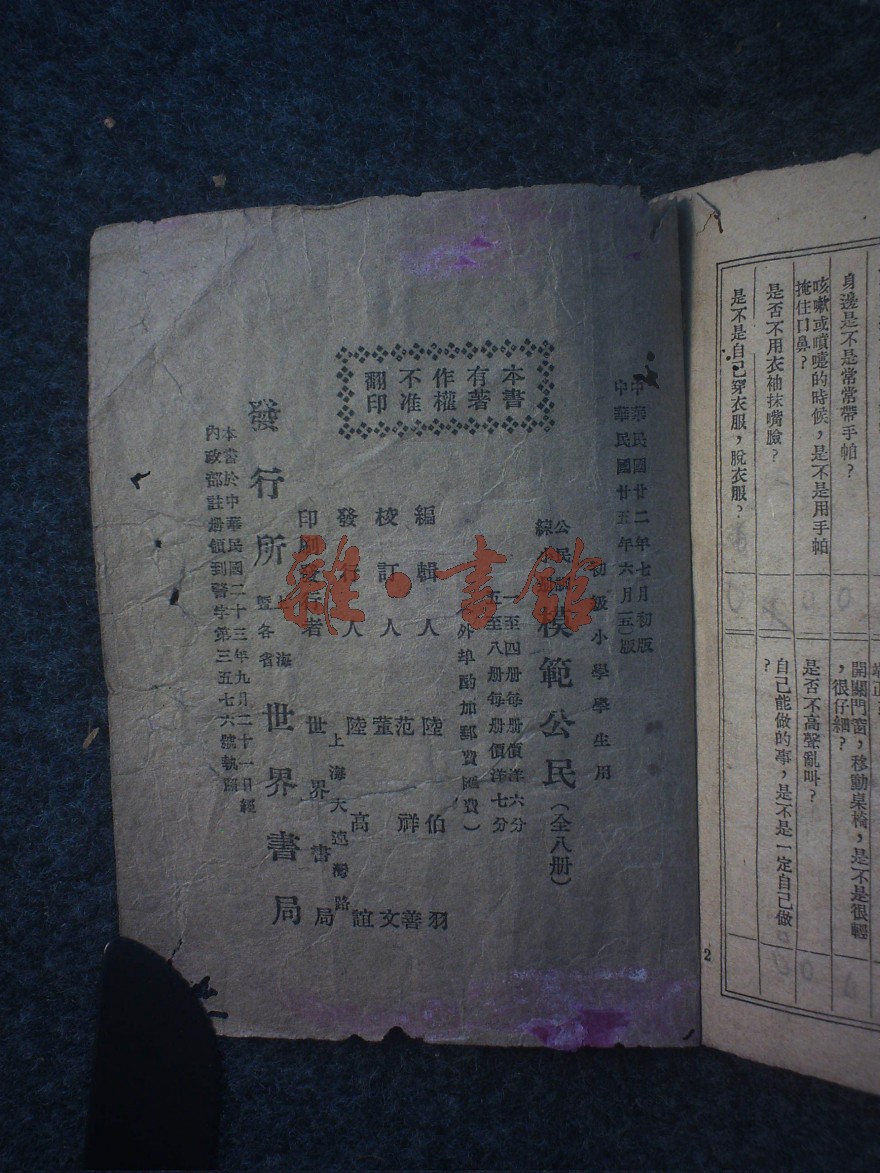 中華民國廿二年七月初版
中華民國廿五年六月
初級小學學生用
公民訓
模範公民（全八册）
一至四册每册價洋六分
五至八册每册價洋七分
外埠酌加郵費匯費）
編輯人 陸伯羽
校訂人 范祥善
董文
發行人 陸高誼
印刷發行者 世界書局
上海大連灣路
發行所 上海 暨各省 世界書局
本書於中華民國二十三年九月二十一日經
內政部註册領到警字第三五七六號執照
本書
有著
作權
不准
翻印
雜·書館
身邊是不是常常帶手帕？
咳嗽或噴嚏的時候，是不是用手帕
掩住口鼻？
是否不用衣袖抹嘴臉？
是不是自己穿衣服，脫衣服？
開關門窗，移動桌椅，是不是很輕
，很仔細？
是否不高聲亂叫？
自己能做的事，是不是一定自己做
？
2